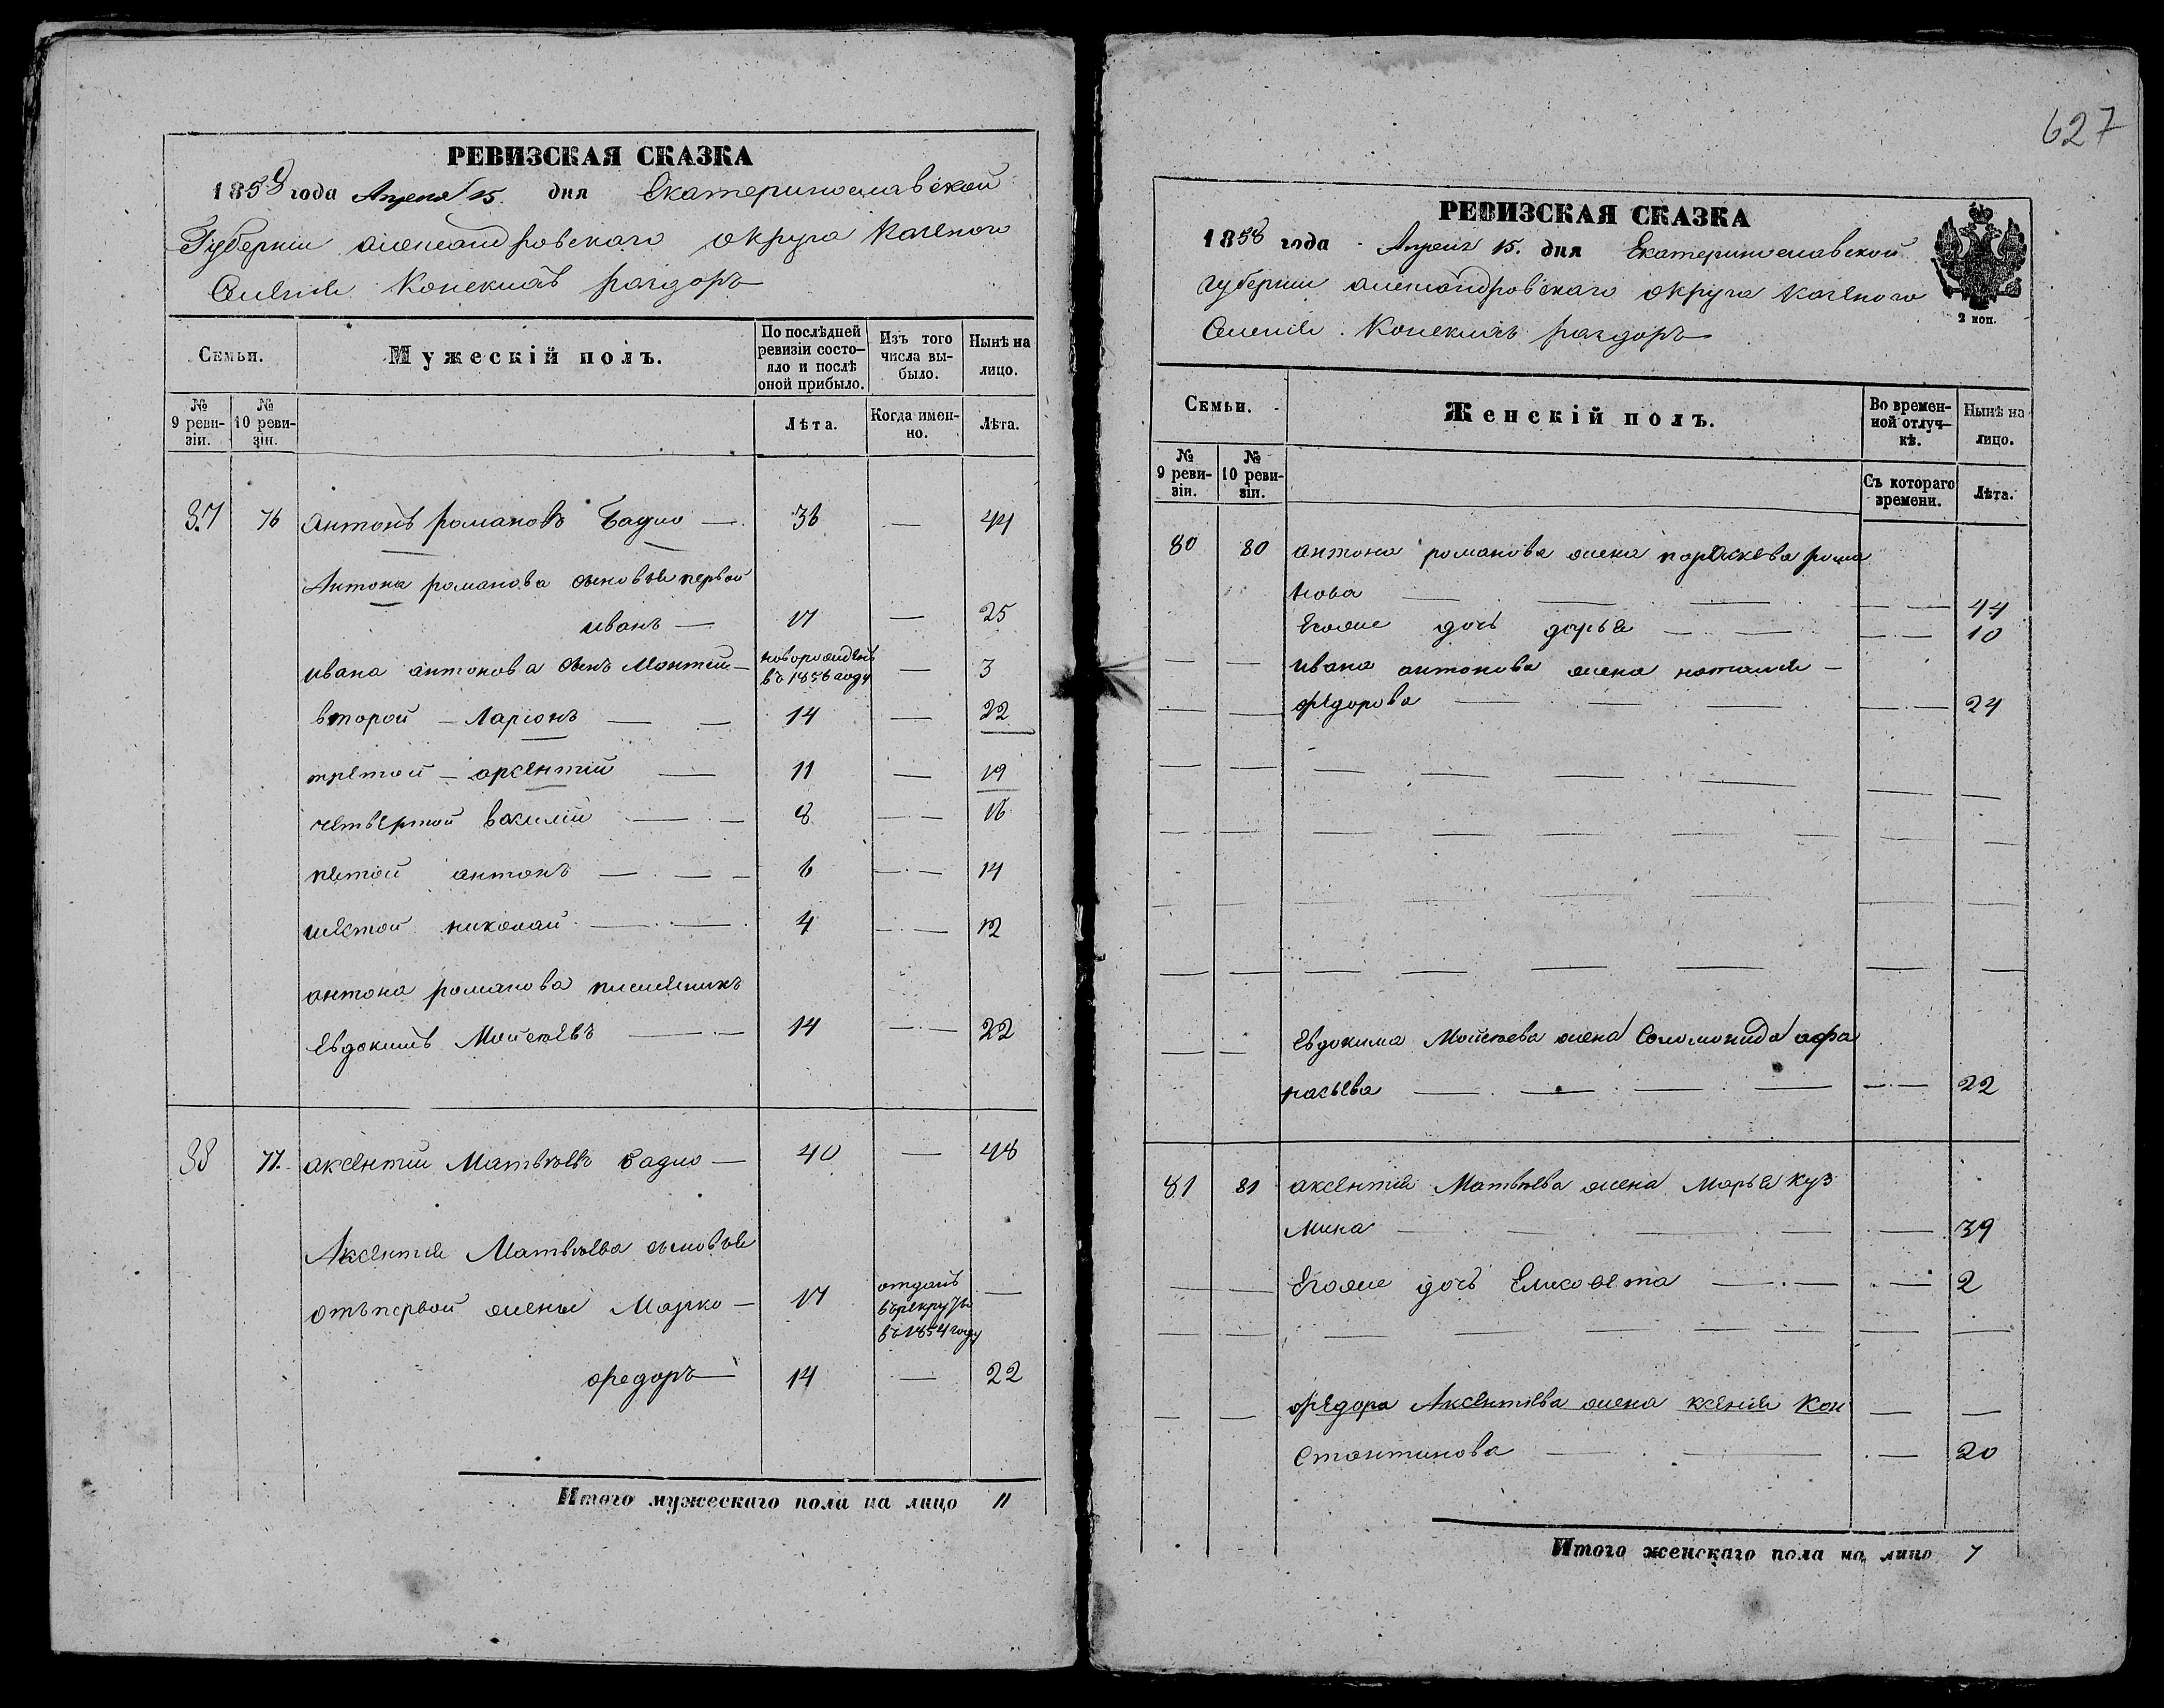 РЕВИЗСКАЯ СКАЗКА
1858 года Апреля 15. дня Екатеринославской
Губернии александровскаго округа казеного
Селения Конскихъ раздоръ
Семьи.
Мужескій полъ.
По послѣдней ревизіи состояло и послѣ оной прибыло.
Изъ того числа выбыло.
Нынѣ на лицо.
№ 9 ревизіи.
№ 10 ревизіи.
Лѣта.
Когда именно.
Лѣта.
37 76 Антонъ романовъ Бадло — 36 — 44
Антона романова сыновья первой
иванъ — 17 — 25
ивана антонова сынъ новорожденъ въ 1856 году — 3
второй — Ларіонъ — — 14 — 22
третой — арсентій — 11 — 19
четвертой василій — — 8 — — 16
пятой антонъ — — — 6 — — 14
шестой николай — — 4 — — 12
антона романова племяникъ
Евдокимъ Мойсѣевъ — — 14 — — 22
38 77. аксентий Матвѣевъ бадло — 40 — 48
Аксентия Матвѣева сыновья
отъ первой жены Марко — 17 отданъ въ рекруты въ 1854 году —
федоръ — 14 — 22
Итого мужескаго пола на лицо 11
627
РЕВИЗСКАЯ СКАЗКА
1858 года Апреля 15. дня Екатеринославской
губернии александровскаго округа казеного
Селения Конскихъ раздоръ
2 коп.
Семьи.
Женскій полъ.
Во временной отлучкѣ.
Нынѣ на лицо.
№ 9 ревизіи.
№ 10 ревизіи.
Съ котораго времени.
Лѣта.
80 80 антона романова жена параскева рома
нова — — — — — 44
Егоже дочь дарья — — — — 10
— — ивана антонова жена наталия —
— — федорова — — — — — 24
— — Евдокима Мойсѣева жена Соломонида афа
насьева — — — — — — 22
81 81 аксентия Матвѣева жена Марья куз
мина — — — — — 39
— — Егоже дочь Елисовета — — — 2
— — федора Аксентиева жена ксения Кон — —
стантинова — — — 20
Итого женскаго пола на лицо 7